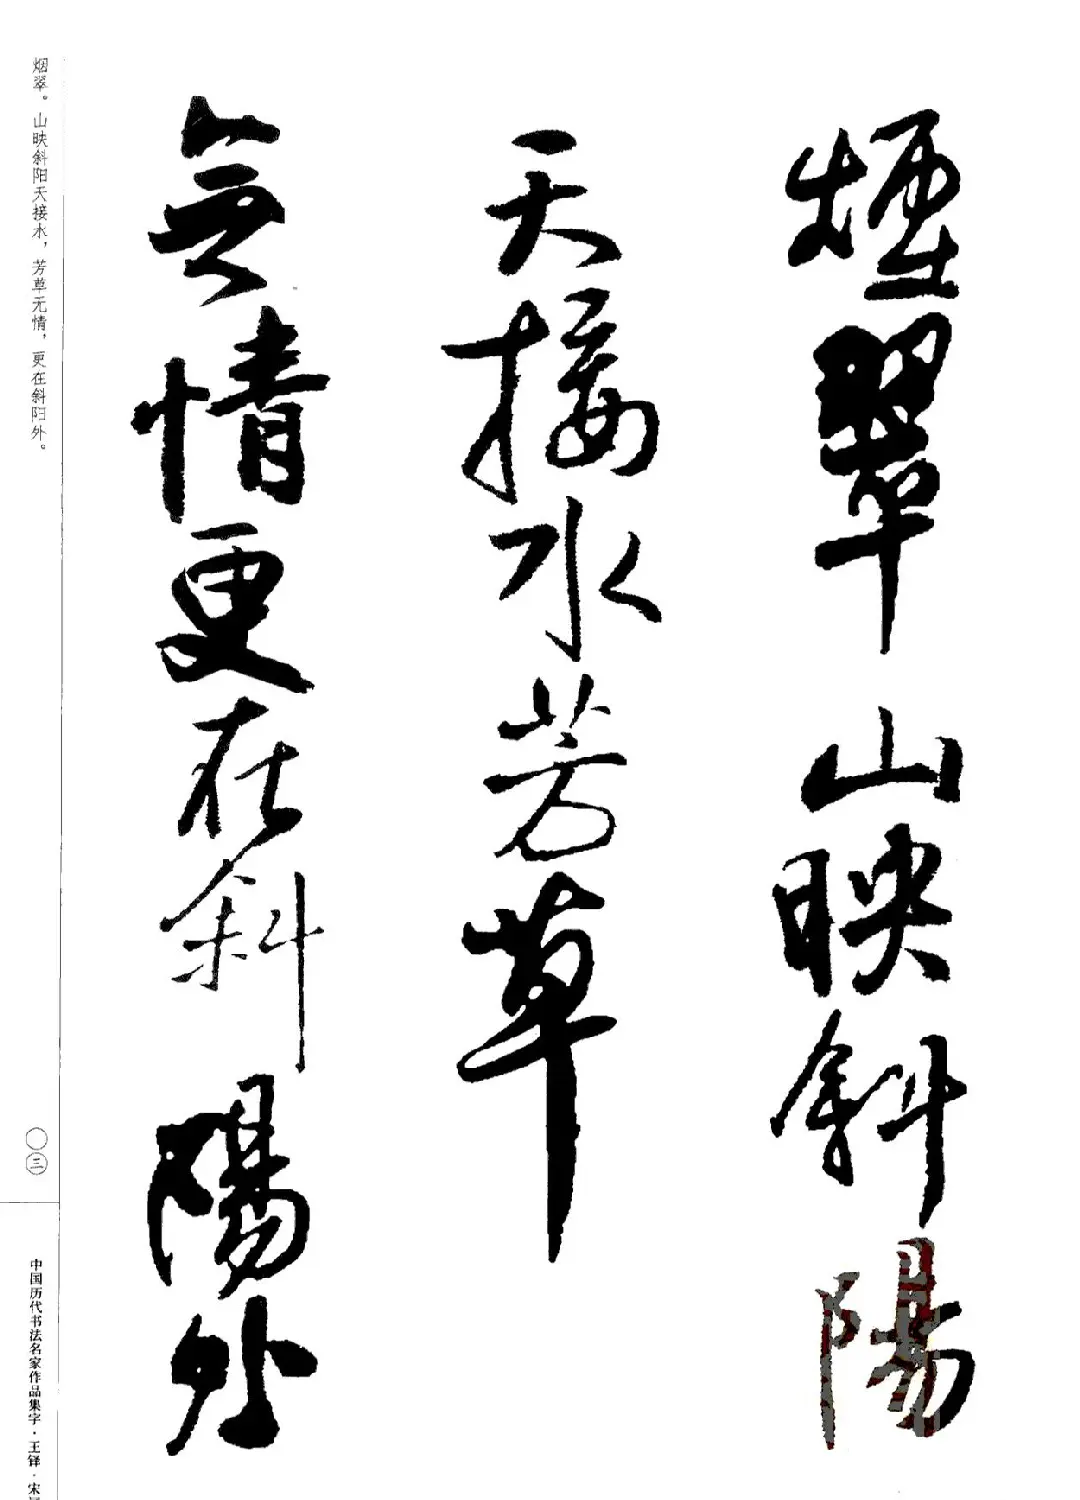 煙翠山映斜陽
天接水芳草
無情更在斜陽外
烟翠。山映斜阳天接水，芳草无情，更在斜阳外。
〇三
中国历代书法名家作品集字·王铎·宋